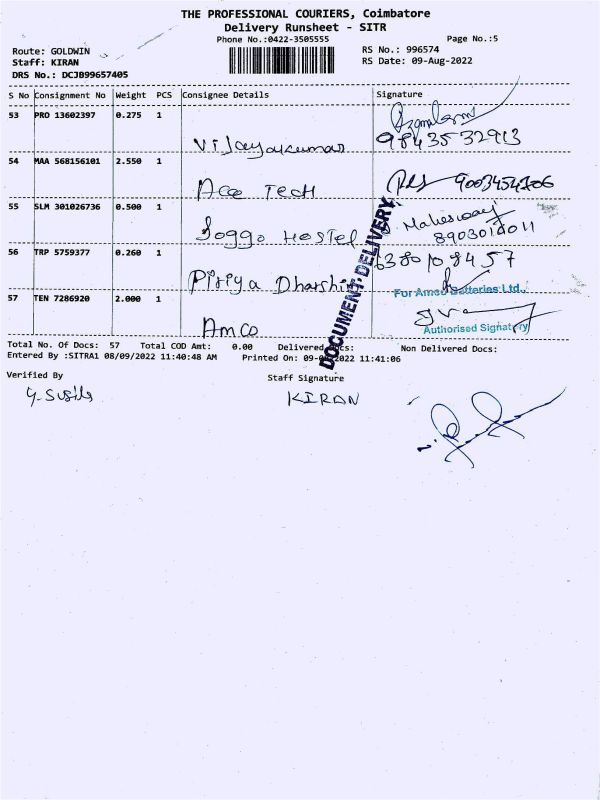 THE PROFESSIONAL COURIERS, Coimbatore
Delivery Runsheet - SITR
Phone No.:0422-3505555
Page No.:5
Route: GOLDWIN
Staff: KIRAN
DRS No.: DCJB99657405
RS No.: 996574
RS Date: 09-Aug-2022
S No Consignment No Weight PCS Consignee Details Signature
53 PRO 13602397 0.275 1
Vijayakumar 9843532913
54 MAA 568156101 2.550 1
Ace Tech
55 SLM 301026736 0.500 1
Hostel Maheswari
56 TRP 5759377 0.260 1
6380108457
Piriya Dharshini
For Amco Batteries Ltd.,
57 TEN 7286920 2.000 1
Amco
Authorised Signatry
DOCUMENT DELIVERY
Total No. Of Docs: 57 Total COD Amt: 0.00 Delivered Docs: Non Delivered Docs:
Entered By :SITRA1 08/09/2022 11:40:48 AM Printed On: 09- 2022 11:41:06
Verified By Staff Signature
KIRAN